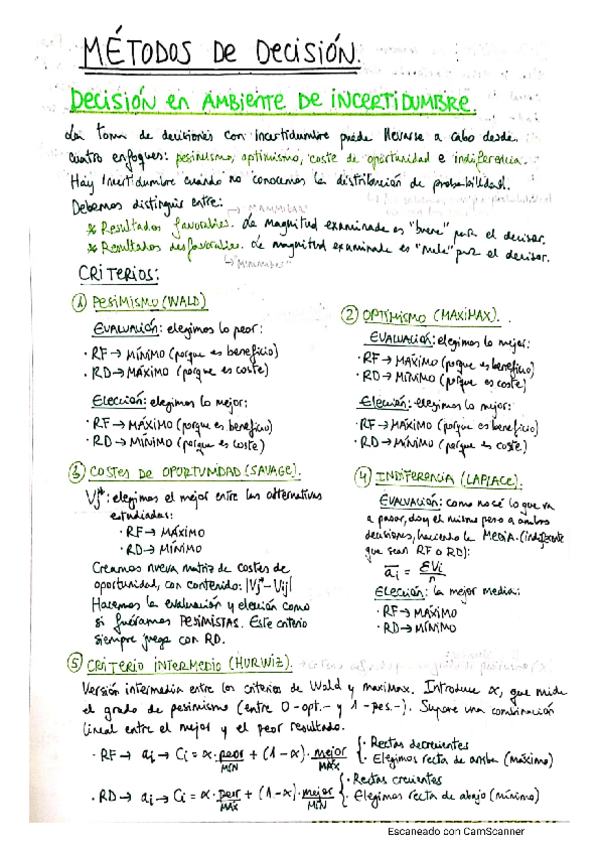 MÉTODOS DE DECISIÓN.
DECISIÓN EN AMBIENTE DE INCERTIDUMBRE.
La toma de decisiones con incertidumbre puede llevarse a cabo desde
cuatro enfoques: pesimismo, optimismo, coste de oportunidad e indiferencia.
Hay incertidumbre cuando no conocemos la distribución de probabilidad.
Debemos distinguir entre:
* Resultados favorables. La magnitud examinada es "buena" para el decisor.
* Resultados desfavorables. La magnitud examinada es "mala" para el decisor.
CRITERIOS:
① PESIMISMO (WALD)
EVALUACIÓN: elegimos lo peor:
· RF → MÍNIMO (porque es beneficio)
· RD → MÁXIMO (porque es coste)
Elección: elegimos lo mejor:
· RF → MÁXIMO (porque es beneficio)
· RD → MÍNIMO (porque es coste)
② OPTIMISMO (MAXIMAX).
EVALUACIÓN: elegimos lo mejor:
· RF → MÁXIMO (porque es beneficio)
· RD → MÍNIMO (porque es coste)
Elección: elegimos lo mejor:
· RF → MÁXIMO (porque es beneficio)
· RD → MÍNIMO (porque es coste)
③ COSTES DE OPORTUNIDAD (SAVAGE).
Vj*: elegimos el mejor entre las alternativas
estudiadas:
· RF → MÁXIMO
· RD → MÍNIMO
Creamos nueva matriz de costes de
oportunidad, con contenido: |Vj* - Vij|
Hacemos la evaluación y elección como
si fuéramos PESIMISTAS. Este criterio
siempre juega con RD.
④ INDIFERENCIA (LAPLACE).
EVALUACIÓN: como no sé lo que va
a pasar, doy el mismo peso a ambas
decisiones, haciendo la MEDIA. (indiferente
que sean RF o RD):
āi = ΣVi / n
ELECCIÓN: la mejor media:
· RF → MÁXIMO
· RD → MÍNIMO
⑤ CRITERIO INTERMEDIO (HURWIZ).
Versión intermedia entre los criterios de Wald y maximax. Introduce α, que mide
el grado de pesimismo (entre 0-opt.- y 1-pes.-). Supone una combinación
lineal entre el mejor y el peor resultado.
· RF → ai → Ci = α · peor + (1-α) · mejor { · Rectas decrecientes
MÍN MÁX · Elegimos recta de arriba (máximo)
· RD → ai → Ci = α · peor + (1-α) · mejor { · Rectas crecientes
MÁX MÍN · Elegimos recta de abajo (mínimo)
Escaneado con CamScanner